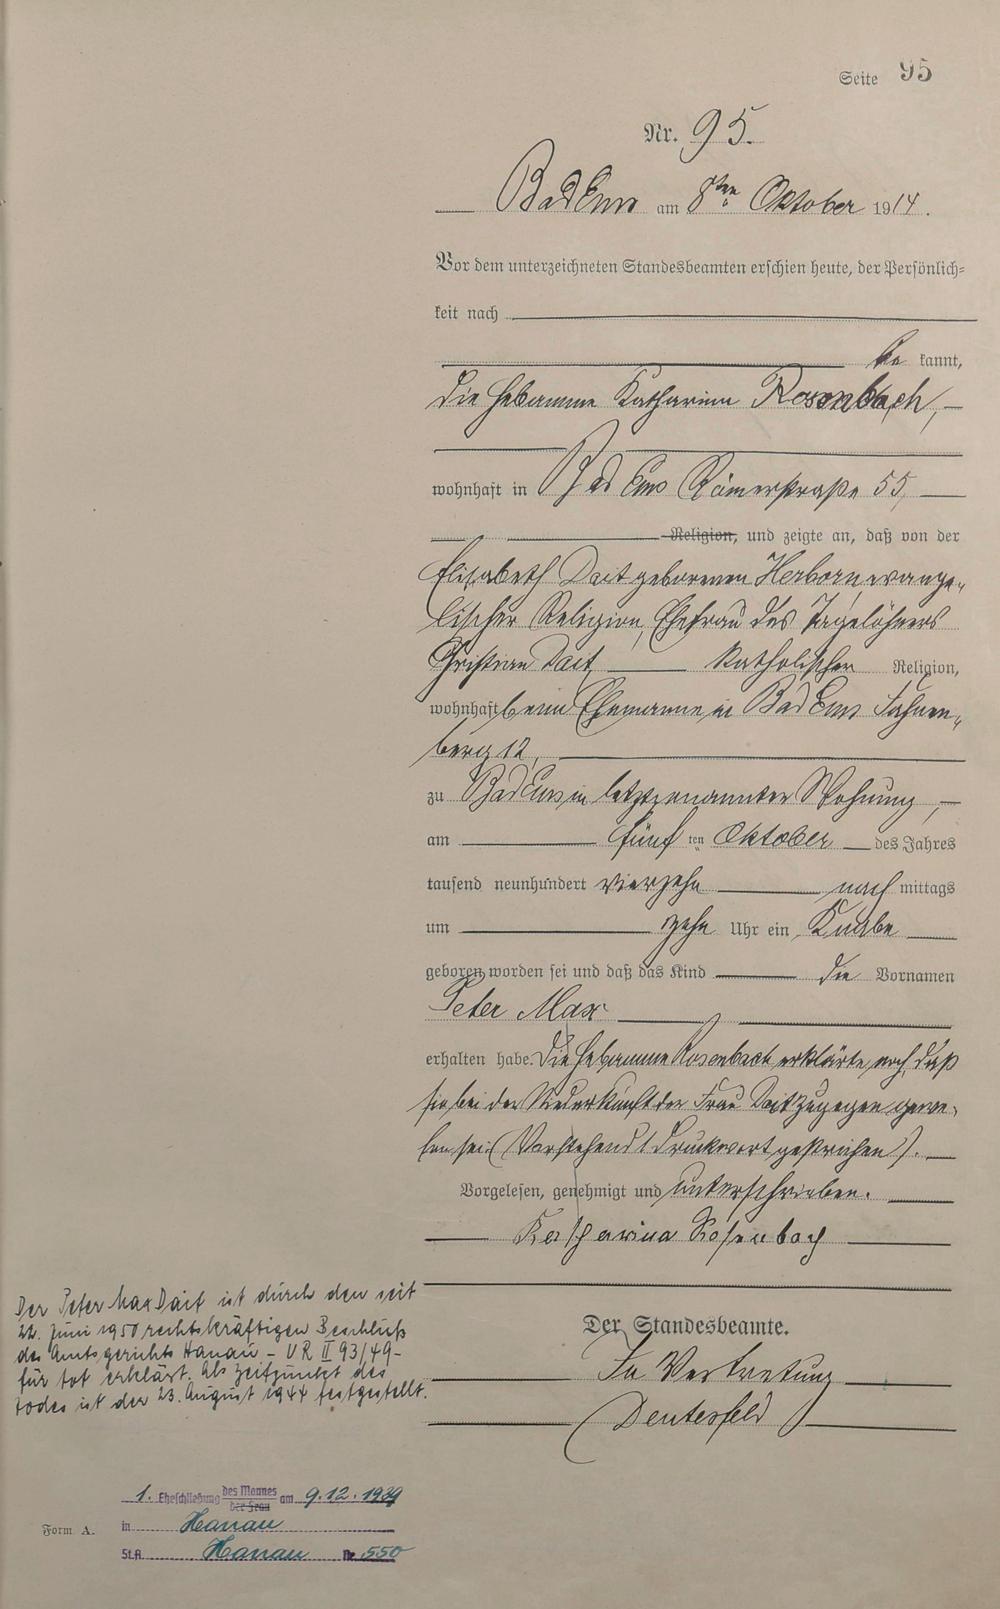 Seite 95
Nr. 95.
Bad Ems am 8ten Oktober 1914.
Vor dem unterzeichneten Standesbeamten erschien heute, der Persönlich-
keit nach
be kannt,
die Hebamme Katharina Rosenbach,
wohnhaft in Bad Ems Römerstraße 55,
Religion, und zeigte an, daß von der
Elisabeth Dait geborenen Herborn, evange-
lischer Religion, Ehefrau des Tagelöhners
Christian Dait, katholischer Religion,
wohnhaft beim Ehemanne in Bad Ems Fahnen-
berg 12,
zu Bad Ems in letztgenannter Wohnung,
am fünf ten Oktober des Jahres
tausend neunhundert vierzehn nach mittags
um zehn Uhr ein Knabe
geboren worden sei und daß das Kind die Vornamen
Peter Max
erhalten habe. Die Hebamme Rosenbach erklärte noch, daß
sie bei der Niederkunft der Frau Dait zugegen gewe-
sen sei. (Vorstehend 1 Druckwort gestrichen).
Vorgelesen, genehmigt und unterschrieben.
Katharina Rosenbach
Der Standesbeamte.
In Vertretung
Deutesfeld
Der Peter Max Dait ist durch den seit
22. Juni 1950 rechtskräftigen Beschluß
des Amtsgerichts Hanau - UR II 93/49 -
für tot erklärt. Als Zeitpunkt des
Todes ist der 23. August 1944 festgestellt.
1. Eheschließung des Mannes der Frau am 9.12.1939
in Hanau
St.A. Hanau Nr. 550
Form A.